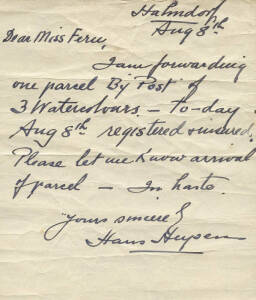 Hahndorf
Aug 8th
Dear Miss Fern,
I am forwarding
one parcel By Post of
3 Watercolours - to-day
Aug 8th registered & insured.
Please let me know arrival
of parcel - In haste.
Yours sincerely
Hans Heysen